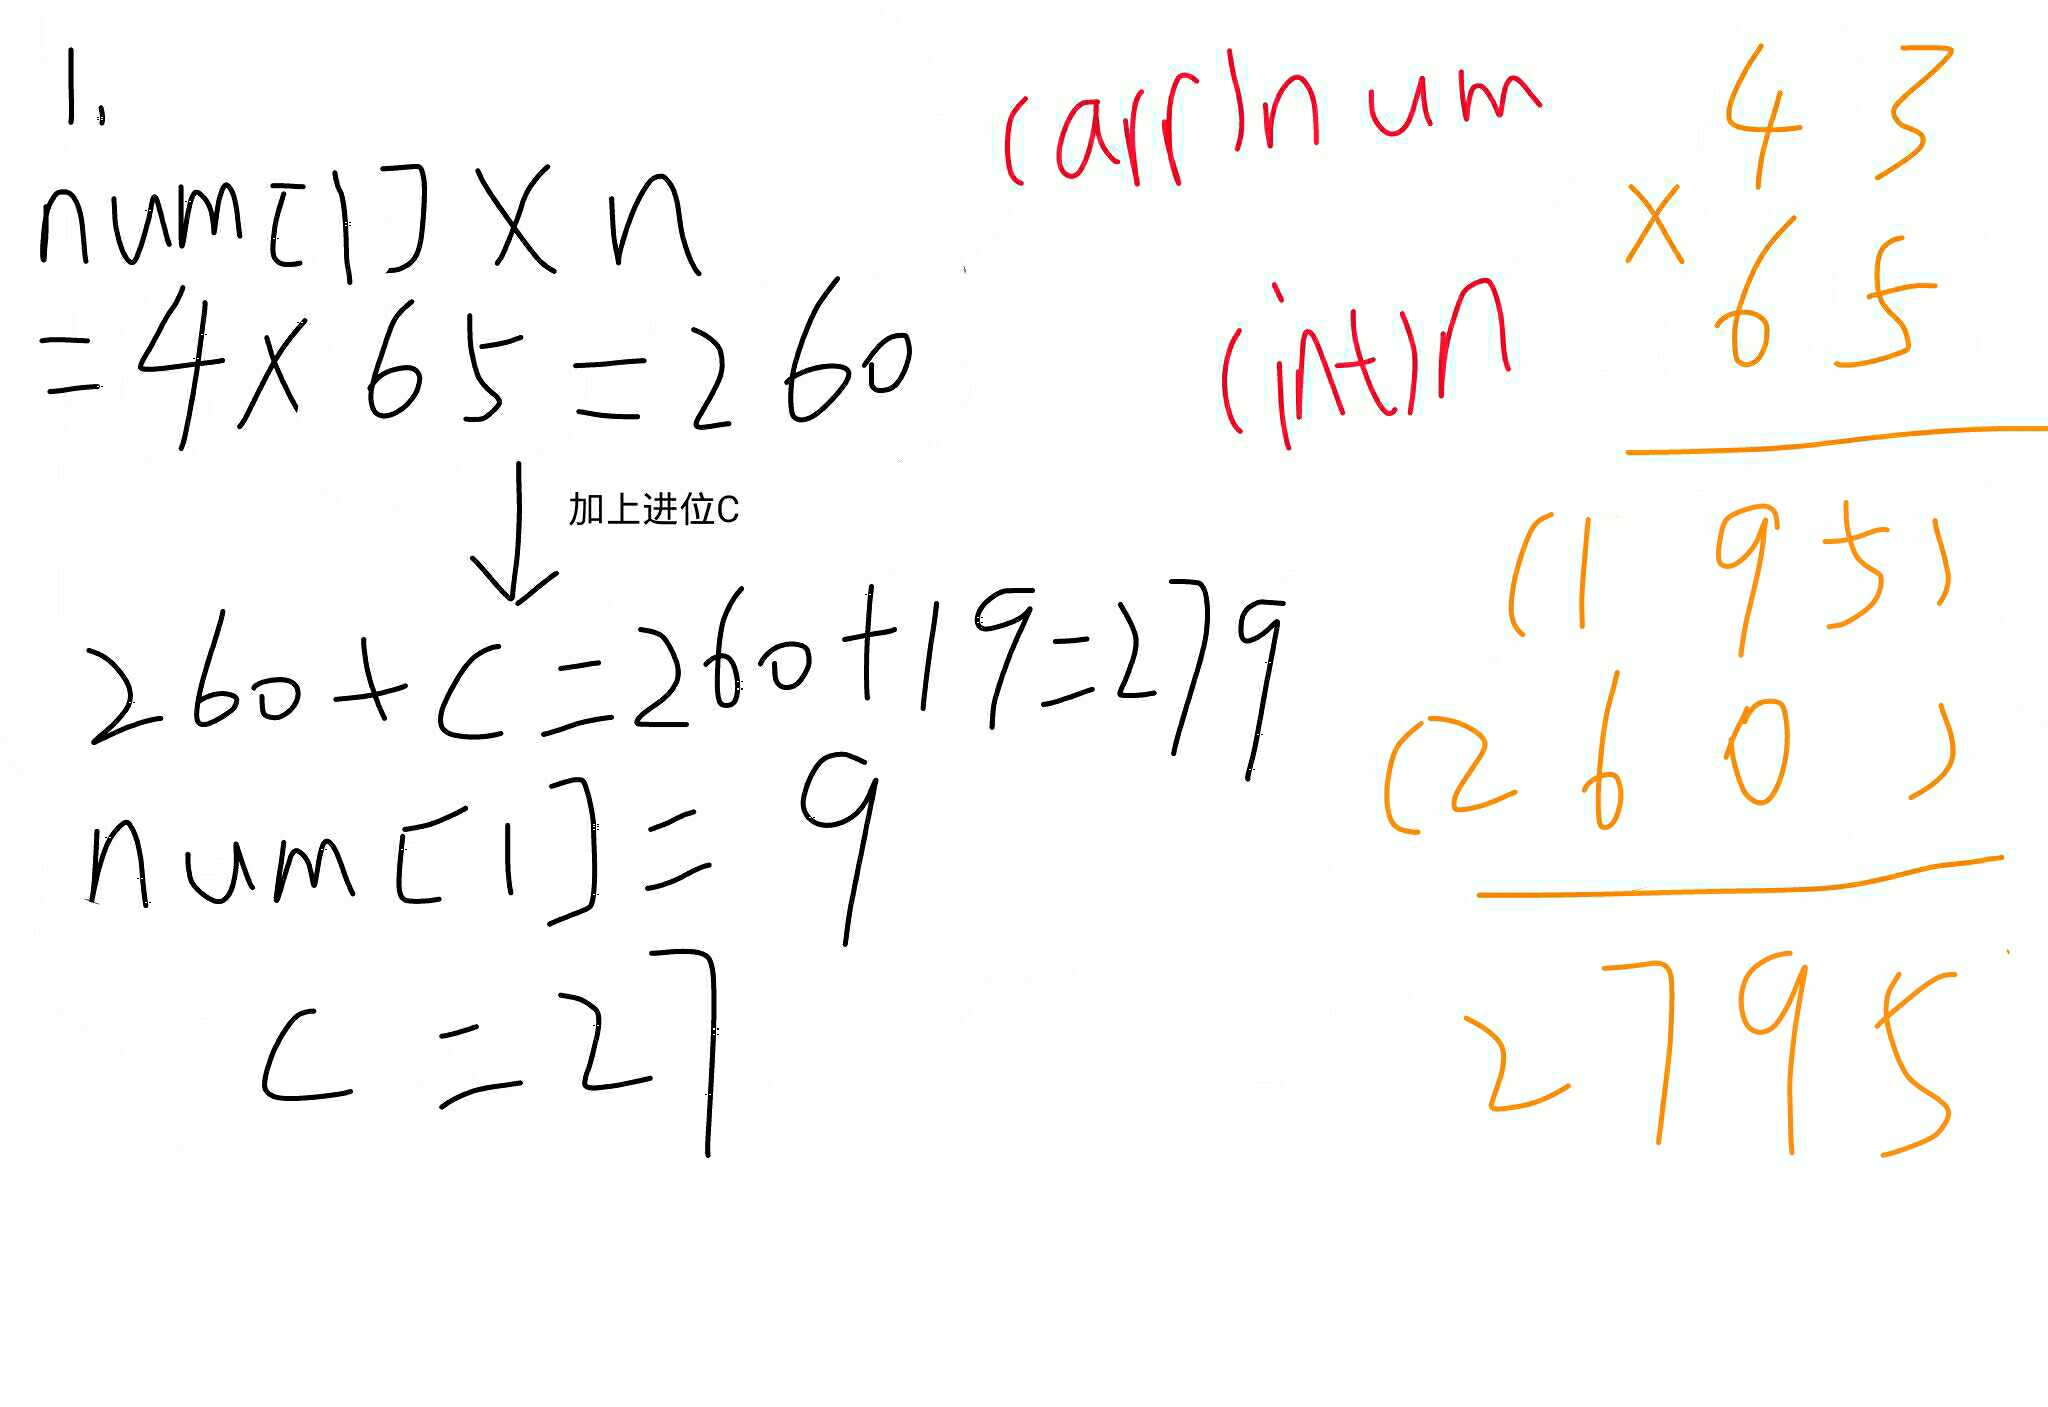 1.
num[1]×n
=4×65=260
加上进位C
260+C=260+19=279
num[1]=9
C=27
(arr)num
(int)n
43
×65
(195)
(260)
2795